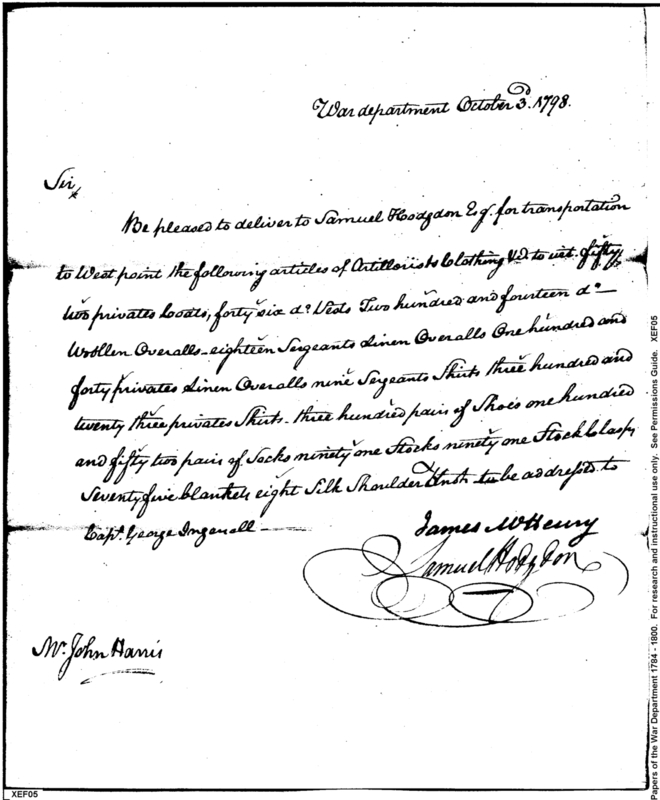 War department October 3d. 1798.
Sir,
Be pleased to deliver to Samuel Hodgdon Esq. for transportation
to West point the following articles of Artillorists Clothing &c. to wit. fifty
two privates Coats, forty six do. Vests Two hundred and fourteen do.
Woollen Overalls - eighteen Sergeants Linen Overalls One hundred and
forty privates Linen Overalls nine Sergeants Shirts three hundred and
twenty three privates Shirts - three hundred pairs of Shoes one hundred
and fifty two pairs of Socks ninety one Stocks ninety one Stock Clasps
Seventy five blankets eight Silk Shoulder Knots to be addressed to
Capt. George Ingersoll -
James McHenry
Samuel Hodgdon
Mr. John Harris
XEF05
Papers of the War Department 1784 - 1800. For research and instructional use only. See Permissions Guide. XEF05